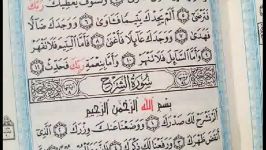 وَلَسَوْفَ يُعْطِيكَ رَبُّكَ
فَتَرْضَىٰ ٥ أَلَمْ يَجِدْكَ يَتِيمًا فَـَٔاوَىٰ ٦ وَوَجَدَكَ ضَآلًّا
فَهَدَىٰ ٧ وَوَجَدَكَ عَآئِلًا فَأَغْنَىٰ ٨ فَأَمَّا ٱلْيَتِيمَ فَلَا تَقْهَرْ
٩ وَأَمَّا ٱلسَّآئِلَ فَلَا تَنْهَرْ ١٠ وَأَمَّا بِنِعْمَةِ رَبِّكَ فَحَدِّثْ ١١
سُورَةُ الشَّرْحِ
بِسْمِ ٱللَّهِ ٱلرَّحْمَٰنِ ٱلرَّحِيمِ
أَلَمْ نَشْرَحْ لَكَ صَدْرَكَ ١ وَوَضَعْنَا عَنكَ وِزْرَكَ ٢ ٱلَّذِىٓ
أَنقَضَ ظَهْرَكَ ٣ وَرَفَعْنَا لَكَ